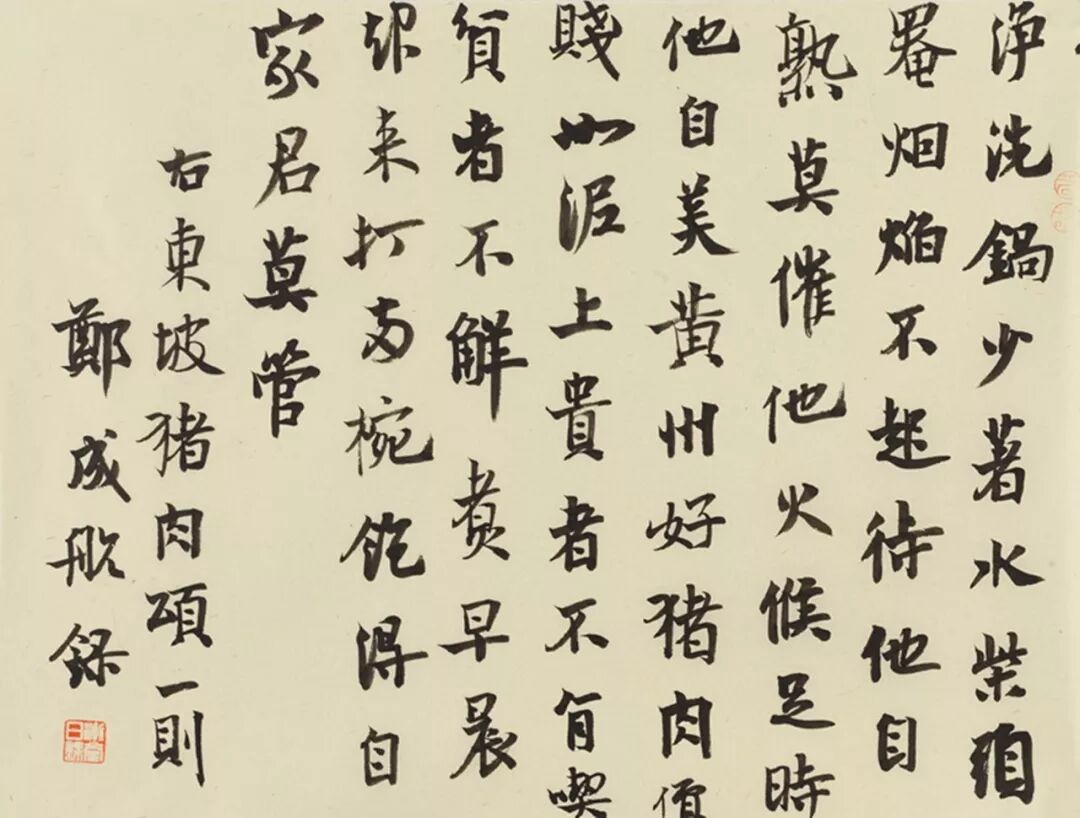 淨洗鍋少著水柴頭
罨烟焰不起待他自
熟莫催他火候足時
他自美黃州好猪肉價
賤如泥土貴者不肯喫
貧者不解煮早晨
起来打兩椀飽得自
家君莫管
右東坡猪肉頌一則
鄭成航錄